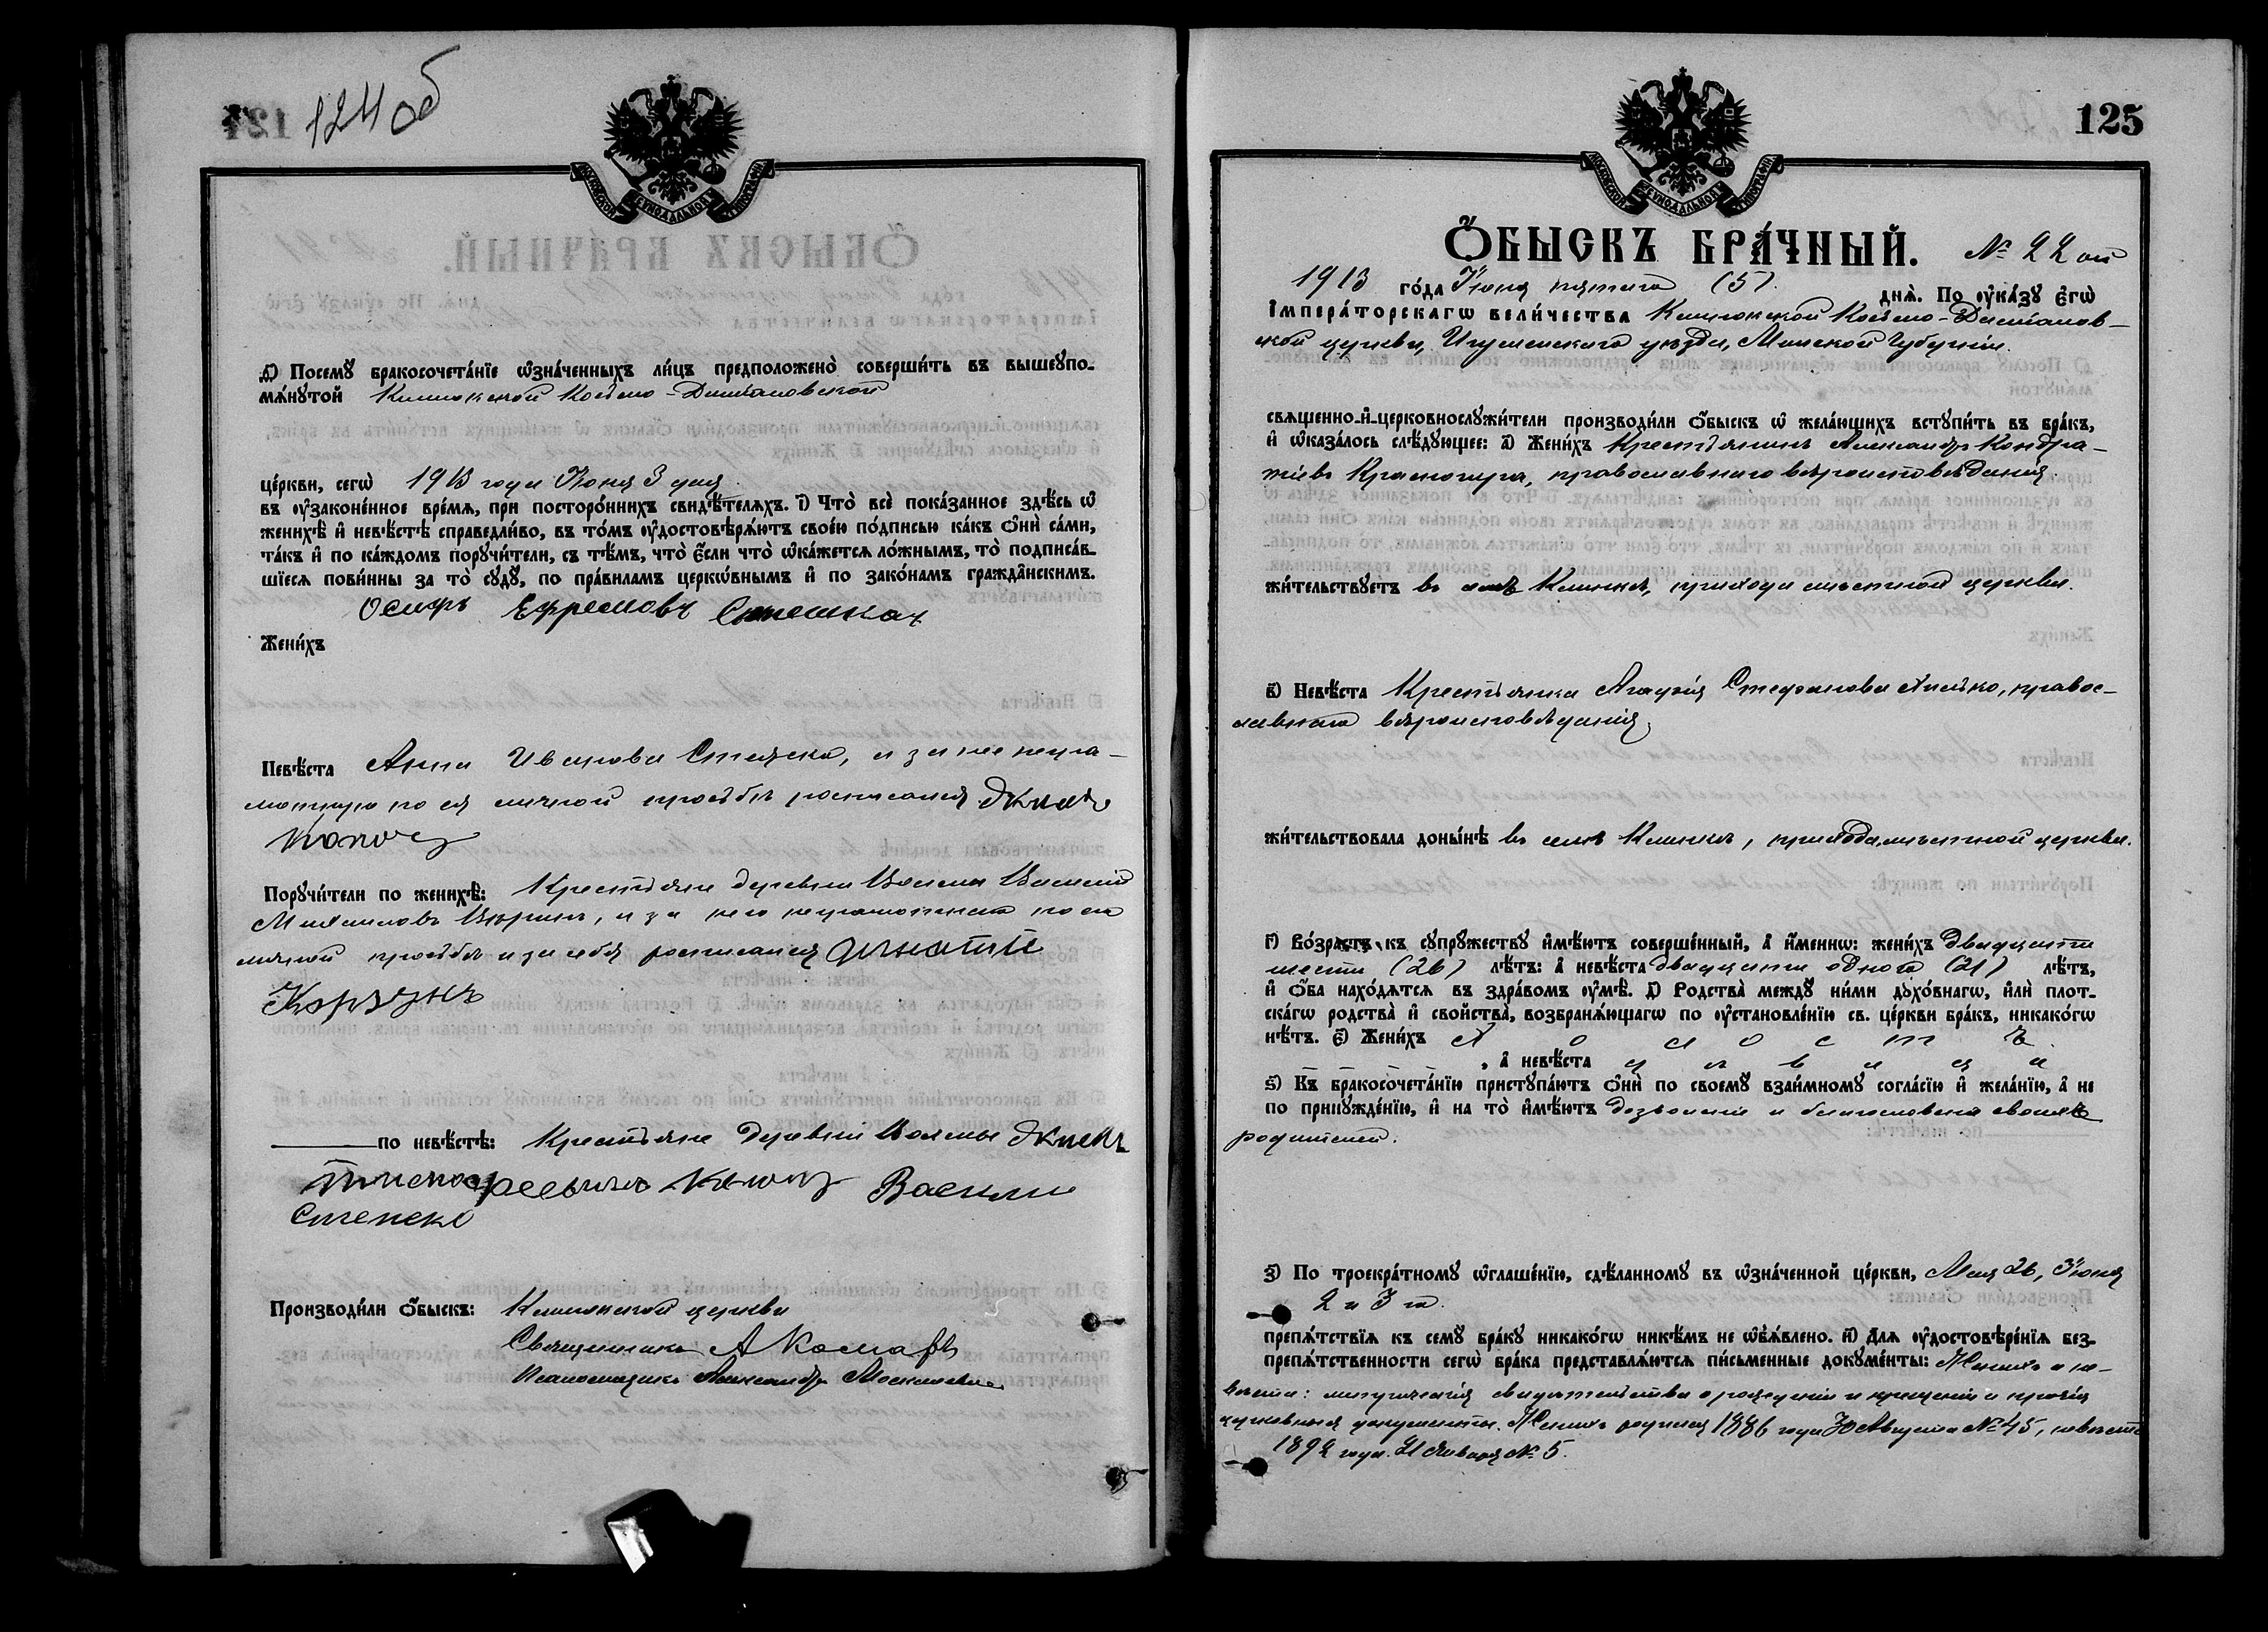 124 об
МОСКОВСКОЙ СѴНОДАЛЬНОЙ ТИПОГРАФІИ
д҃) Посемꙋ бракосочета́нїе ѡ҆зна́ченныхъ ли́цъ предположено̀ соверши́ть въ вышеꙋпо-
мѧ́нꙋтой Клинокской Косьмо-Даміановской
це́ркви, сегѡ̀ 1913 года Іюня 3 дня
въ ᲂу҆законе́нное вре́мѧ, при посторо́ннихъ свидѣ́телѧхъ. і҃) Что̀ всѐ пока́занное здѣ́сь ѡ҆
женихѣ̀ и҆ невѣ́стѣ справедли́во, въ то́мъ ᲂу҆достовѣрѧ́ютъ свое́ю по́дписью ка́къ ѻ҆нѝ са́ми,
та́къ и҆ по ка́ждомъ порꙋчи́тели, съ тѣ́мъ, что̀ є҆́сли что̀ ѡ҆ка́жетсѧ ло́жнымъ, то̀ подписа́в-
шїесѧ пови́нны за то̀ сꙋдꙋ̀, по пра́виламъ церкѡ́внымъ и҆ по зако́намъ гражда̂нскимъ.
Осифъ Ефремовъ
Жени́хъ
Невѣ́ста Анна Иванова, а за нее негра-
мотную по ея личной просьбѣ росписался
Порꙋчи́тели по женихѣ̀: Крестьяне деревни Василій
Михаиловъ, и за него неграмотнаго по его
личной просьбѣ и за себя росписался Игнатій
Корзунъ
по невѣ́стѣ: Крестьяне деревни
Василий
Производи́ли ѻ҆́быскъ: Клинокской церкви
Священникъ А Комаръ
Псаломщикъ Александръ
125
МОСКОВСКОЙ СѴНОДАЛЬНОЙ ТИПОГРАФІИ
Ѻ҆́БЫСКЪ БРА́ЧНЫЙ. № 22 ой
1913 го́да Іюня пятаго (5) днѧ̀. По ᲂу҆ка́зꙋ є҆гѡ̀
І҆мпера́торскагѡ вели́чества Клинокской Косьмо-Даміанов-
ской церкви, Игуменскаго уѣзда, Минской Губерніи.
свѧщенно-и҆-церковнослꙋжи́тели производи́ли ѻ҆́быскъ ѡ҆ жела́ющихъ встꙋпи́ть въ бра́къ,
и҆ ѡ҆каза́лось слѣ́дꙋющее: а҃) Жени́хъ Крестьянинъ Александръ Кондра-
тіевъ, православнаго вѣроисповѣданія.
жи́тельствꙋетъ въ селѣ Клинкѣ, прихода мѣстной церкви.
в҃) Невѣ́ста Крестьянка Агафія Стефанова, правос-
лавнаго вѣроисповѣданія,
жи́тельствовала доны́нѣ въ селѣ Клинкѣ, прихода мѣстной церкви.
г҃) Во́зрастъ къ сꙋпрꙋ́жествꙋ и҆мѣ́ютъ соверше́нный, а҆ и҆́меннѡ: жени́хъ двадцати
шести (26) лѣ́тъ: а҆ невѣ́ста двадцати одного (21) лѣ́тъ,
и҆ ѻ҆́ба нахо́дѧтсѧ въ здра́вомъ ᲂу҆мѣ̀. д҃) Родства̀ междꙋ̀ ни́ми дꙋхо́внагѡ, и҆лѝ плот-
ска́гѡ родства̀ и҆ свойства̀, возбранѧ́ющагѡ по ᲂу҆становле́нїю св. це́ркви бра́къ, никако́гѡ
нѣ́тъ. є҃) Жени́хъ х о л о с т ъ
, а҆ невѣ́ста д ѣ в и ц а
ѕ҃) Къ бракосочета́нїю пристꙋпа́ютъ ѻ҆нѝ по своемꙋ̀ взаи́мномꙋ согла́сїю и҆ жела́нїю, а҆ не
по принꙋжде́нїю, и҆ на то̀ и҆мѣ́ютъ дозволеніе и благословеніе своихъ
родителей.
з҃) По троекра́тномꙋ ѡ҆глаше́нїю, сдѣ́ланномꙋ въ ѡ҆зна́ченной це́ркви, Мая 26, Іюня
2 и 3 го.
препѧ́тствїѧ къ семꙋ̀ бра́кꙋ никако́гѡ никѣ́мъ не ѡ҆б̾ѧ́влено. и҃) Длѧ ᲂу҆достовѣре́нїѧ без-
препѧ́тственности сегѡ̀ бра́ка представлѧ́ютсѧ пи́сьменные докꙋме́нты: Женихъ и не-
вѣста: метрическія свидѣтельства о рожденіи и крещеніи и прочія
церковныя документы. Женихъ родился 1886 года 30 Августа № 45, невѣста
1892 года 21 Января № 5.